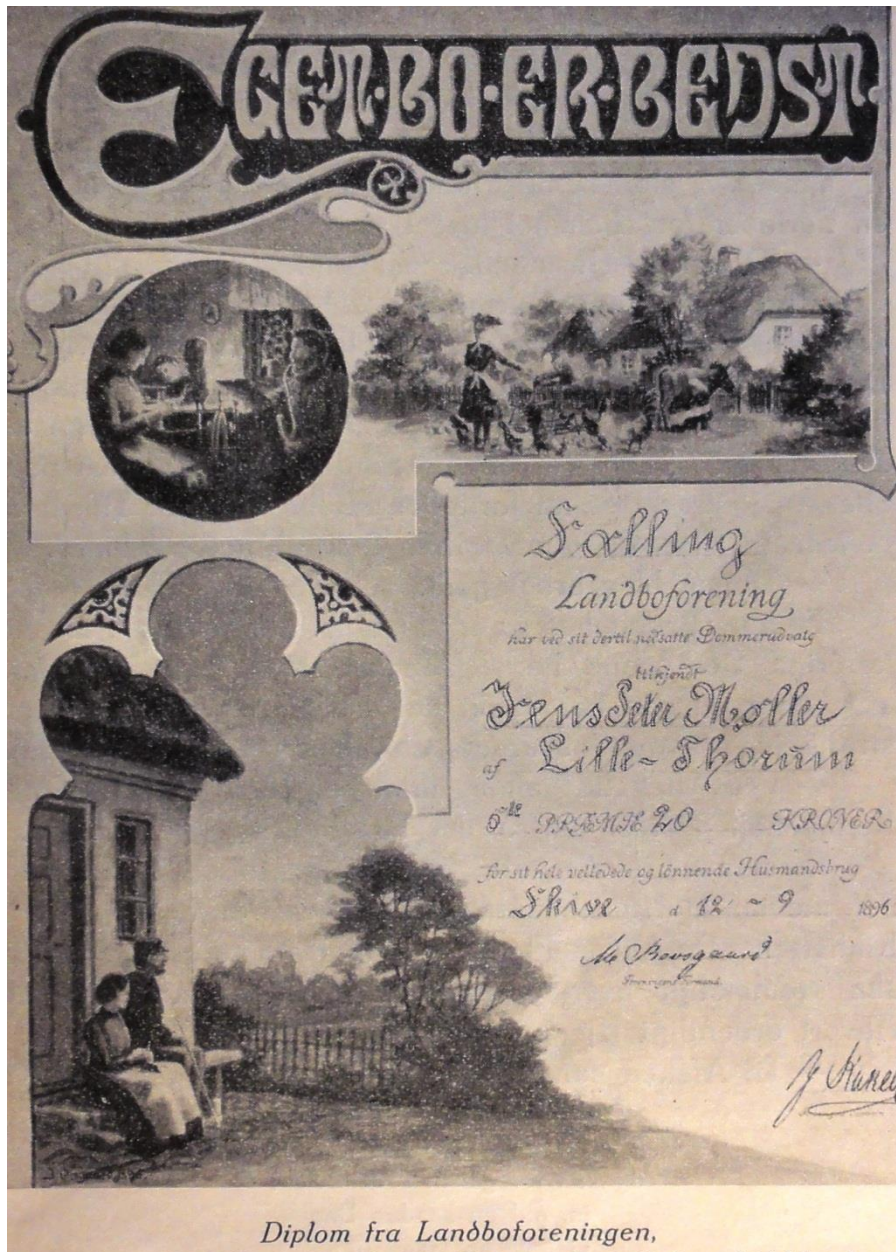 EGET·BO·ER·BEDST·
Salling
Landboforening
har ved sit dertil nedsatte Dommerudvalg
tilkjendt
Jens Peter Møller
af Lille-Thorum
5te PRÆMIE 20 KRONER
for sit hele velledede og lönnende Husmandsbrug
Skive d 12 - 9 1896
Foreningens Formand.
Diplom fra Landboforeningen,